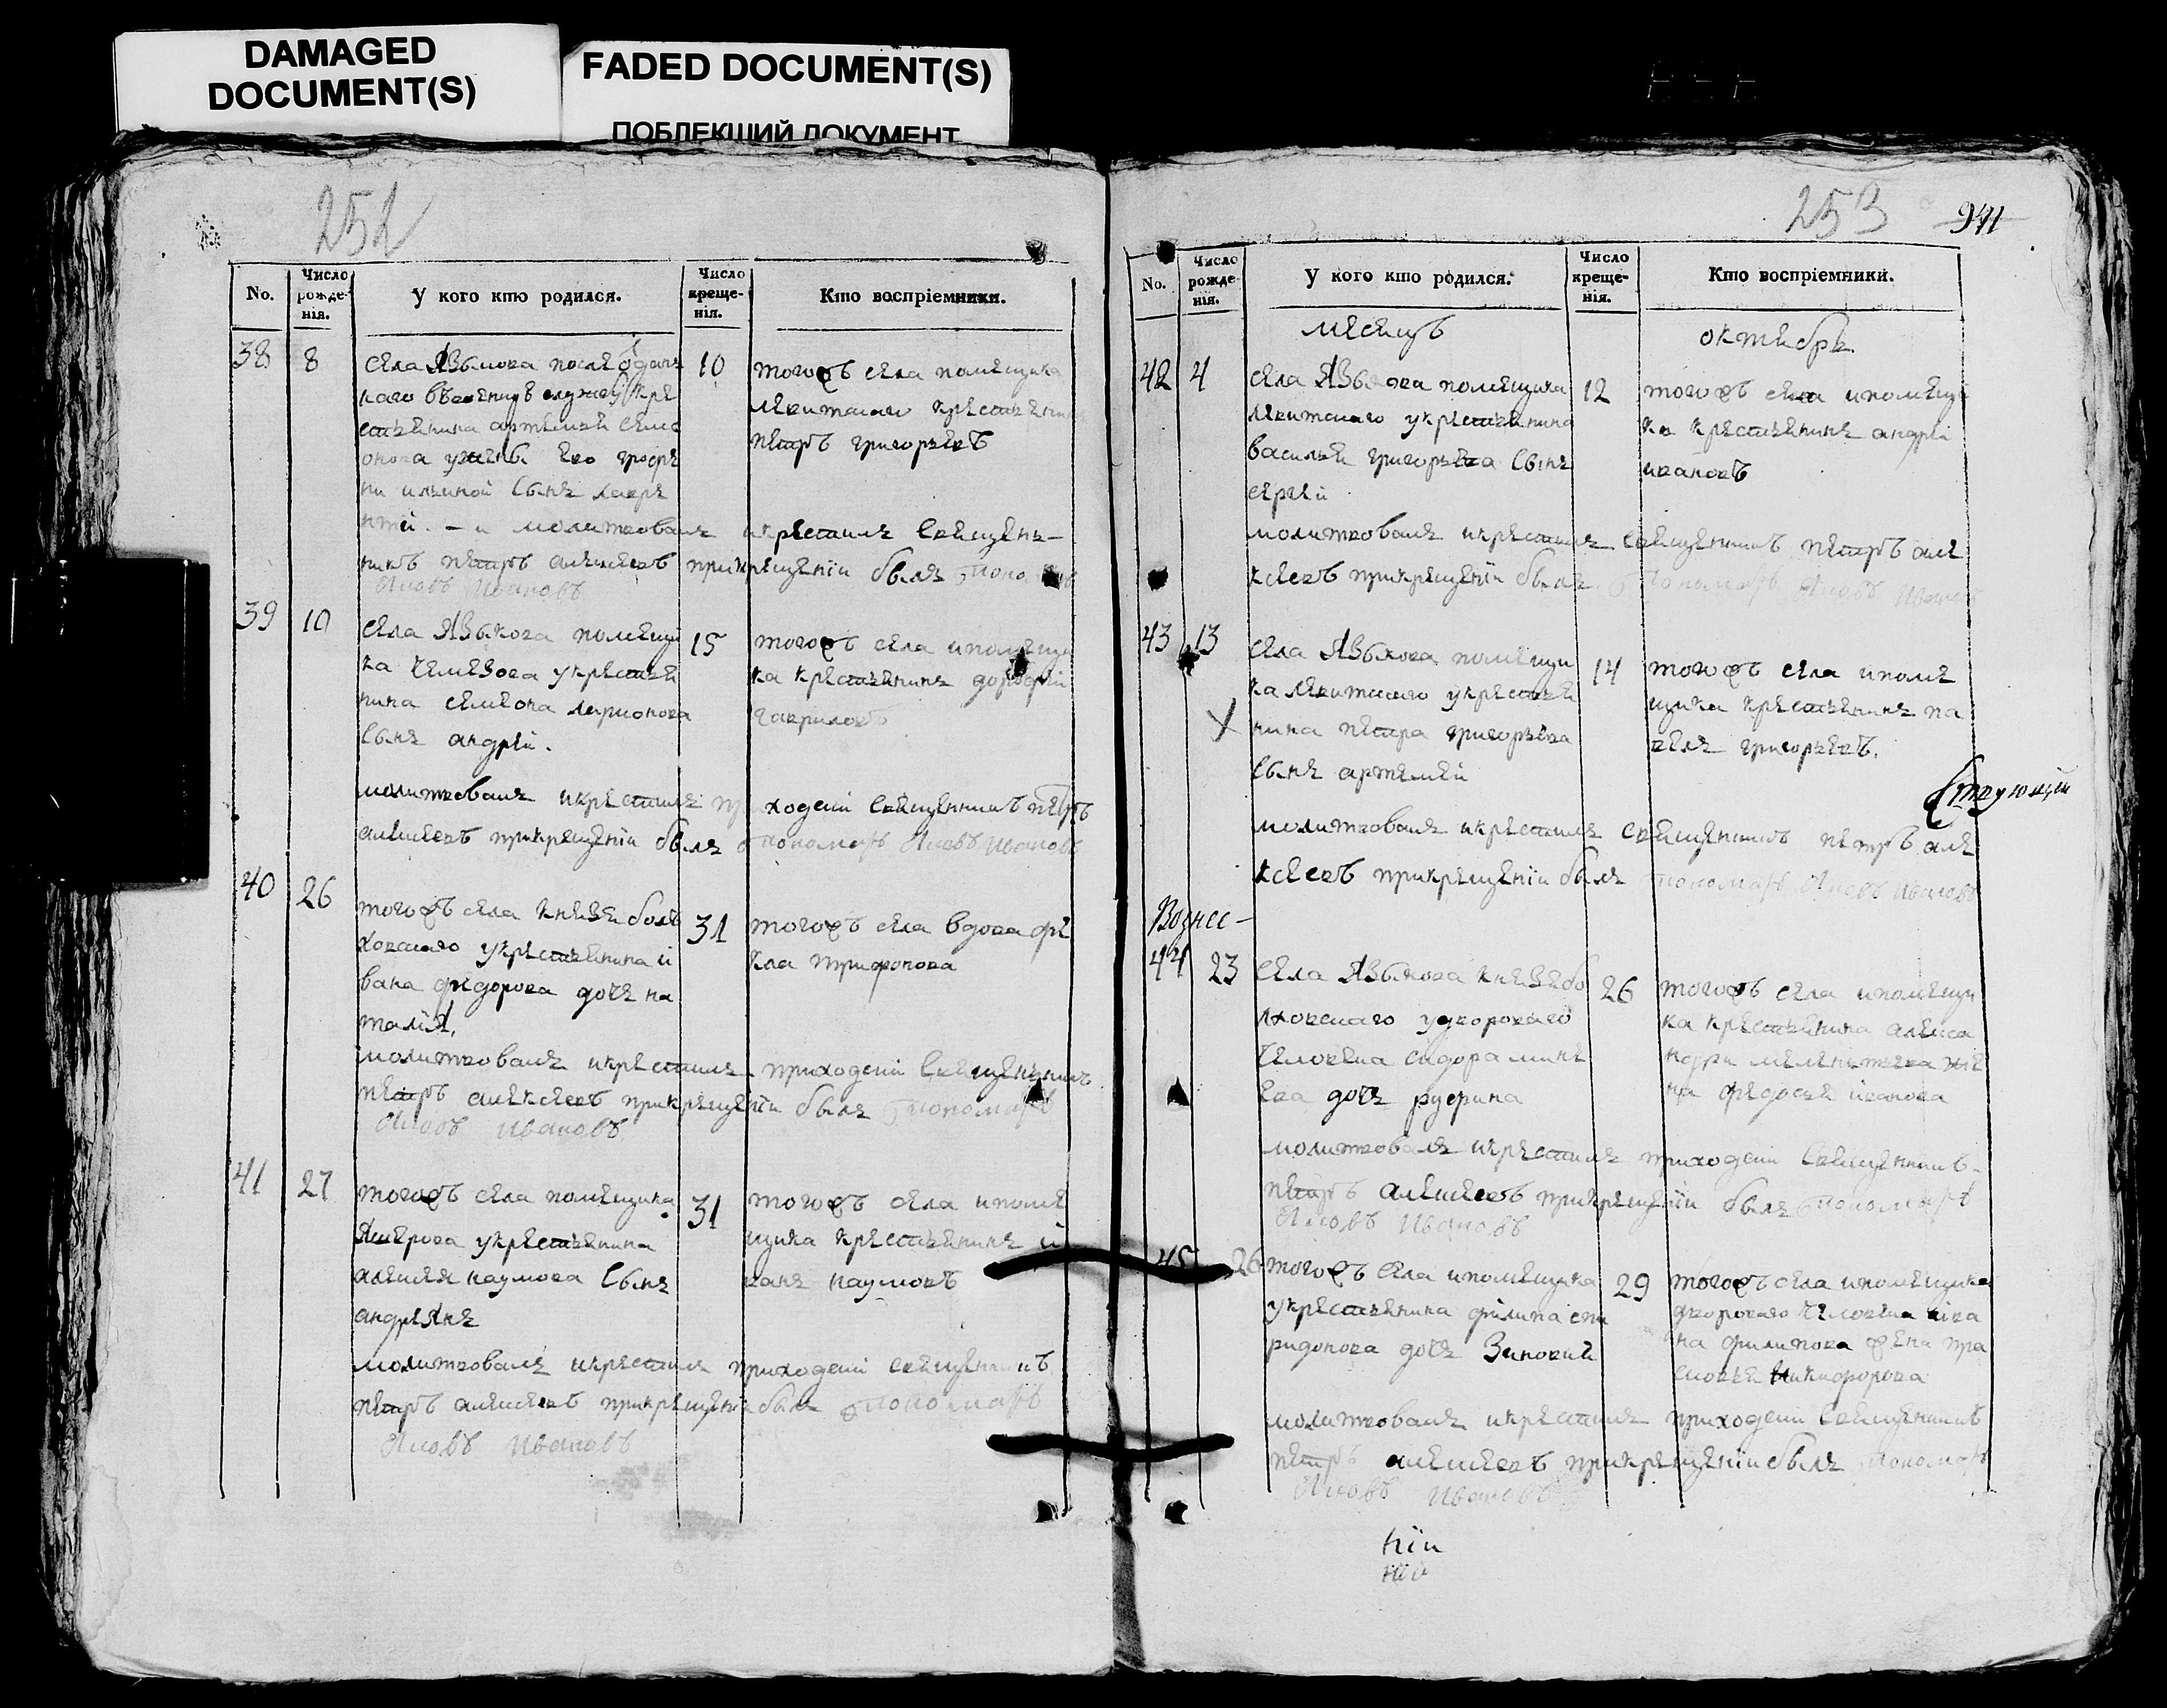 DAMAGED
DOCUMENT(S)
FADED DOCUMENT(S)
ПОБЛЕКШИЙ ДОКУМЕНТ
252
No.
Число рожденія.
У кого кто родился.
Число крещенія.
Кто воспріемники.
38 8
села Языкова после
кре
стьянина артемья семи
онова ужены его
ни ильиной сынъ лавре
нтей. – и молитвовалъ
10
тогожъ села помещика
левитскаго крестьянинъ
петръ григорьевъ
икрестилъ священъ-
никъ петръ алексеевъ прикрещенiи былъ
Яковъ Ивановъ
39 10
села Языкова помещи
ка укрестья
нина семиона ларионова
сынъ андрей.
15
тогожъ села ипомещи
ка крестьянинъ
гавриловъ
молитвовалъ икрестилъ приходский священникъ петръ
алексеевъ прикрещенiи былъ пономарь Яковъ Ивановъ
40 26
тогожъ села князя болъ
ховскаго укрестьянина и
вана федорова дочь на
талiя.
31
тогожъ села вдова фе
кла трифонова
молитвовалъ икрестилъ приходский священникъ
петръ алексеевъ прикрещенiи былъ пономарь
Яковъ Ивановъ
41 27
тогожъ села помещика
укрестьянина
алексея наумова сынъ
андреянъ
31
тогожъ села ипоме
щика крестьянинъ и
ванъ наумовъ
молитвовалъ икрестилъ приходский священникъ
петръ алексеевъ прикрещенiи былъ пономарь
Яковъ Ивановъ
253
941
No.
Число рожденія.
У кого кто родился.
Число крещенія.
Кто воспріемники.
месяцъ
октябрь
42 4
села Языкова помещика
левитскаго укрестьянина
василья григорьева сынъ
сергей
12
тогожъ села ипомещи
ка крестьянинъ андрей
ивановъ
молитвовалъ икрестилъ священникъ петръ але
ксеевъ прикрещенiи былъ пономарь Яковъ Ивановъ
43 13
села Языкова помещи
ка левитскаго укрестья
нина петра григорьева
сынъ артемей
14
тогожъ села ипоме
щика крестьянинъ па
велъ григорьевъ.
молитвовалъ икрестилъ священникъ петръ але
ксеевъ прикрещенiи былъ пономарь Яковъ Ивановъ
44 23
села Языкова князя бо
лховскаго удвороваго
человека сидора мине
ева дочь
26
тогожъ села ипомещи
ка крестьянина алекса
ндры мелентьева же
на федосья иванова
молитвовалъ икрестилъ приходский священникъ-
петръ алексеевъ прикрещенiи былъ пономарь
Яковъ Ивановъ
45 26
тогожъ села ипомещика
укрестьянина филипа спи
ридонова дочь Зиновия
29
тогожъ села ипомещика
двороваго человека ива
на филипова жена пра
сковья никифорова
молитвовалъ икрестилъ приходский священникъ
петръ алексеевъ прикрещенiи былъ пономарь
Яковъ Ивановъ
нiи
нiи